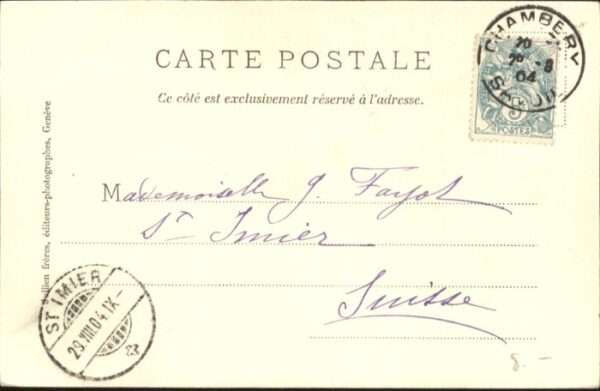 CARTE POSTALE
Ce côté est exclusivement réservé à l'adresse.
CHAMBERY
04
5
POSTES
Mademoiselle J. Fayot
St Imier
Suisse
Jullien frères, éditeurs-photographes, Genève
ST IMIER
29.VIII.04.IX-
8.-